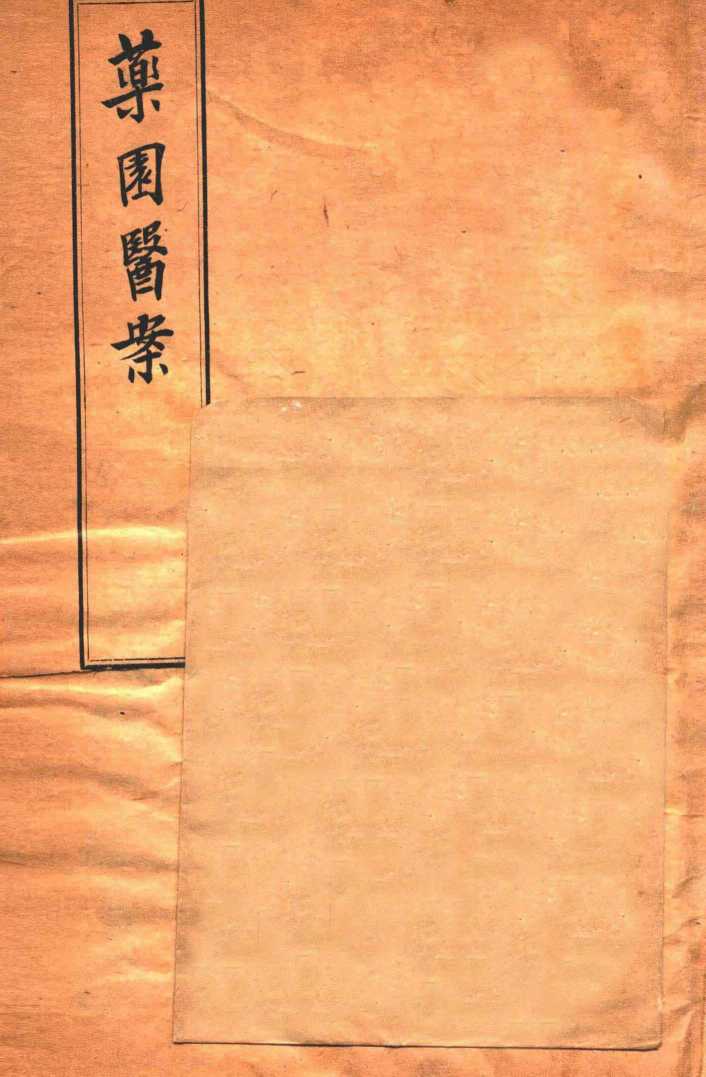 藥園醫案